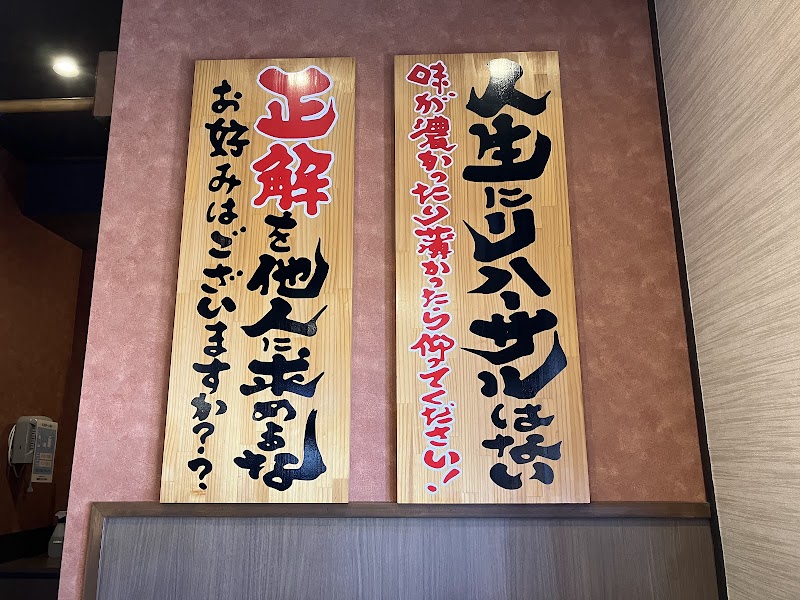 人生にリハーサルはない
味が濃かったり薄かったら仰ってください！
正解を他人に求めるな
お好みはございますか？？